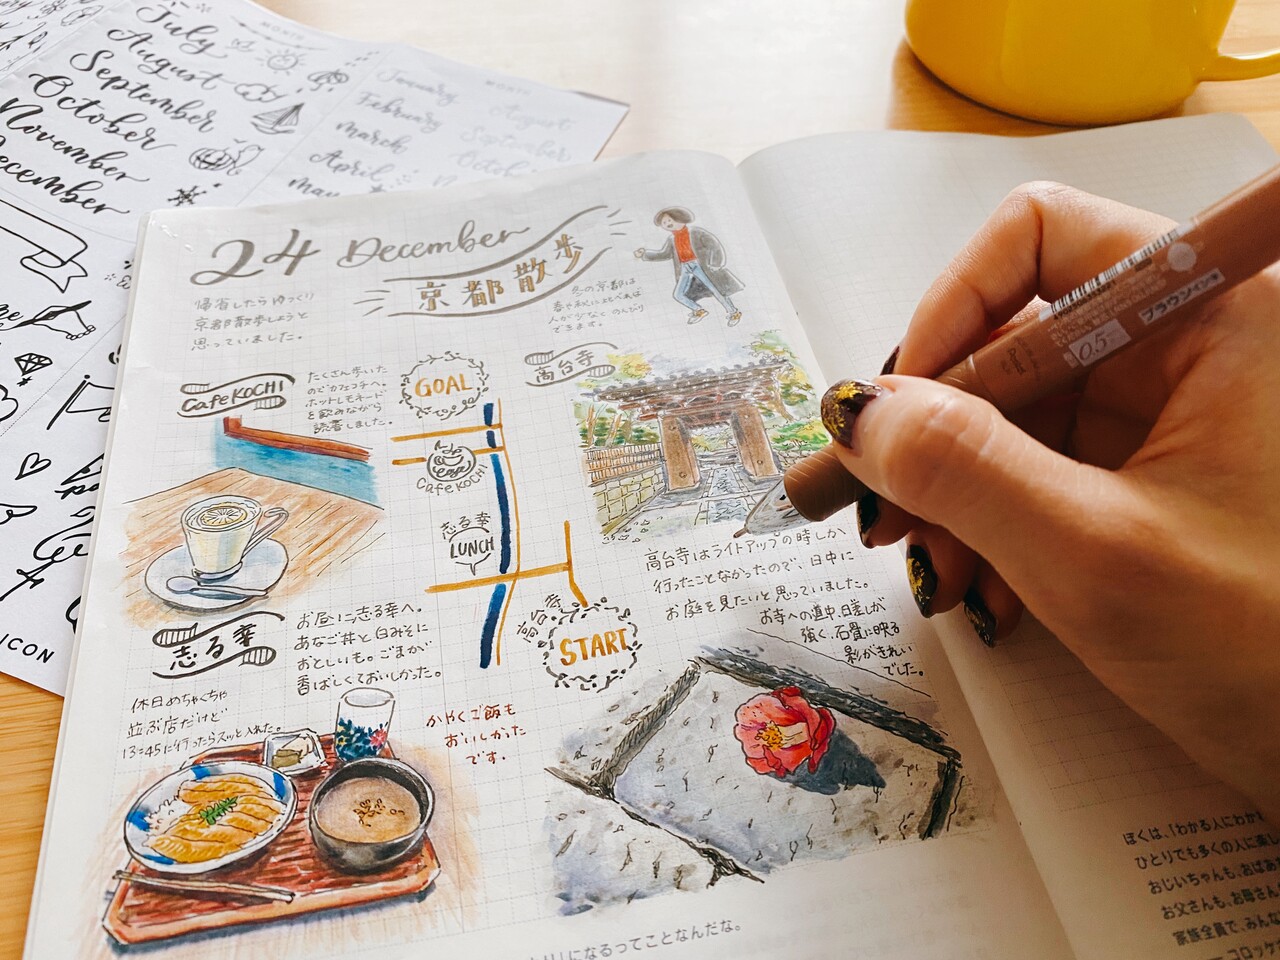 July
August
September
October
November
December
MONTH
January
February
March
April
May
August
September
October
ICON
24 December
京都散歩
帰省したらゆっくり
京都散歩しようと
思っていました。
冬の京都は
春や秋にくらべれば
人が少なく のんびり
できます。
Cafe KOCHI
たくさん歩いた
のでカフェコチへ。
ホットレモネード
を飲みながら
読書しました。
GOAL
cafe KOCHI
志る幸
LUNCH
高台寺
START
高台寺
高台寺はライトアップの時しか
行ったことなかったので、日中に
お庭を見たいと思っていました。
お寺への道中、日差しが
強く、石畳に映る
影がきれい
でした。
志る幸
お昼に志る幸へ。
あなご丼と白みそに
おとしいも。ごまが
香ばしくておいしかった。
休日めちゃくちゃ
並ぶ店だけど
13:45に行ったらスッと入れた。
かやくご飯も
おいしかった
です。
になるってことなんだな。
ぼくは、「わかる人にわか
ひとりでも多くの人に楽し
おじいちゃんも、おばあ
お父さんも、お母さん
家族全員で、みんな
コロッケ
0.5
ブラウンインキ